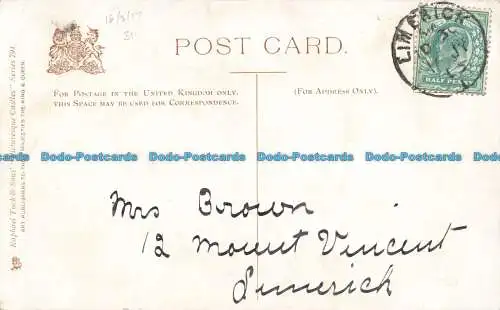 16/8/17
POST CARD.
LIMERICK
HALF PENNY
FOR POSTAGE IN THE UNITED KINGDOM ONLY,
THIS SPACE MAY BE USED FOR CORRESPONDENCE.
(FOR ADDRESS ONLY).
Raphael Tuck & Sons' "Picturesque Castles" Series 791.
ART PUBLISHERS TO THEIR MAJESTIES THE KING & QUEEN.
Dodo-Postcards Dodo-Postcards Dodo-Postcards Dodo-Postcards
Mrs Brown
12 Mount Vincent
Limerick